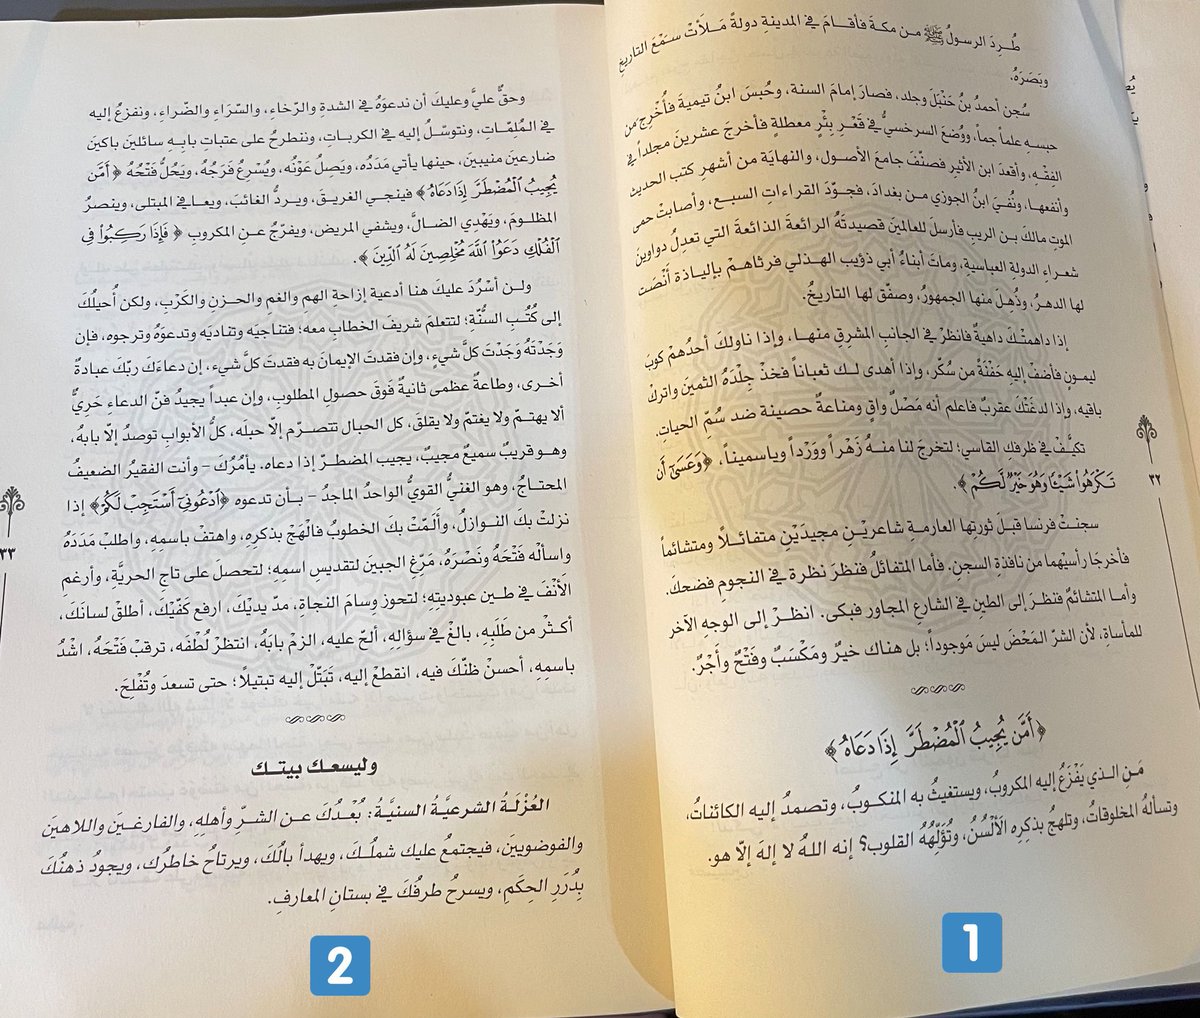 طُرِدَ الرسولُ ﷺ من مكةَ فأقامَ في المدينةِ دولةً مَلَأتْ سَمْعَ التاريخِ
وبَصَرَهُ.
سُجن أحمدُ بنُ حَنْبَلَ وجلد، فصارَ إمامَ السنة، وحُبسَ ابنُ تيمية فأُخْرِج من
حبسهِ علماً جماً، ووُضعَ السرخسيُّ في قَعْرِ بِئْرٍ معطلةٍ فأخرجَ عشرينَ مجلداً في
الفِقْهِ، وأقعدَ ابن الأثيرِ فصنَّفَ جامعَ الأصول، والنهايَة من أشهرِ كتب الحديث
وأنفعِها، ونُفيَ ابنُ الجوزي من بغدادَ، فجوَّدَ القراءاتِ السبع، وأصابتْ حمى
الموتِ مالكَ بن الريبِ فأرسلَ للعالمينَ قصيدتَهُ الرائعةَ الذائعةَ التي تعدِلُ دواوينَ
شعراءِ الدولةِ العباسيةِ، وماتَ أبناءُ أبي ذؤيب الهذلي فرثاهمْ بإلياذة أنْصَت
لها الدهرُ، وذُهِلَ منها الجمهورُ، وصفَّق لها التاريخُ.
إذا داهمتْكَ داهيةٌ فانظرْ في الجانبِ المشرقِ منها، وإذا ناولكَ أحدُهمْ كوبَ
ليمونٍ فأضفْ إليهِ حَفْنَةً من سُكَّر، وإذا أهدى لك ثعباناً فخذْ جِلْدَهُ الثمينَ واتركْ
باقيه، وإذا لدغَتْكَ عقربٌ فاعلم أنه مَصْلٌ واقٍ ومناعةٌ حصينة ضد سُمِّ الحياتِ.
تكيَّف في ظرفِكَ القاسي؛ لتخرجَ لنا منهُ زَهْراً ووَرْداً وياسميناً، ﴿وَعَسَىٰٓ أَن
تَكْرَهُوا۟ شَيْـًٔا وَهُوَ خَيْرٌ لَّكُمْ﴾.
٢٢
سجنتْ فرنسا قبلَ ثورتِها العارمةِ شاعرينِ مجيدَيْنِ متفائلاً ومتشائماً
فأخرجَا رأسيْهما من نافذةِ السجنِ. فأما المتفائلُ فنظرَ نظرة في النجومِ فضحكَ.
وأما المتشائمُ فنظرَ إلى الطينِ في الشارعِ المجاورِ فبكى. انظرْ إلى الوجهِ الآخر
للمأساةِ، لأن الشرَّ المَحْضَ ليسَ مَوجوداً؛ بل هناك خيرٌ ومَكْسَبٌ وفَتْحٌ وأجْرٌ.
﴿أَمَّن يُجِيبُ ٱلْمُضْطَرَّ إِذَا دَعَاهُ﴾
مَنِ الذي يَفْزَعُ إليه المكروبُ، ويستغيثُ به المنكوبُ، وتصمدُ إليه الكائناتُ،
وتسألهُ المخلوقاتُ، وتلهجُ بذكرِه الألسُنُ، وتُؤَلِّهُهُ القلوب؟ إنه اللهُ لا إلهَ إلّا هو.
1
وحقٌّ عليَّ وعليكَ أن ندعوَهُ في الشدةِ والرّخاءِ، والسّرّاءِ والضّراءِ، ونفزعُ إليه
في المُلمَّاتِ، ونتوسّلُ إليه في الكرباتِ، وننطرحُ على عتباتِ بابه سائلينَ باكينَ
ضارعينَ منيبينَ، حينها يأتي مَدَدُه، ويَصِلُ عَوْنُه، ويُسْرِعُ فَرَجُهُ، ويَحُلُّ فَتْحُهُ ﴿أَمَّن
يُجِيبُ ٱلْمُضْطَرَّ إِذَا دَعَاهُ﴾ فينجي الغريقَ، ويردُّ الغائبَ، ويعافي المبتلى، وينصرُ
المظلومَ، ويَهْدِي الضالَّ، ويشفي المريضَ، ويفرّجُ عنِ المكروبِ ﴿فَإِذَا رَكِبُوا۟ فِى
ٱلْفُلْكِ دَعَوُا۟ ٱللَّهَ مُخْلِصِينَ لَهُ ٱلدِّينَ﴾.
ولن أسْرُدَ عليكَ هنا أدعيةَ إزاحةِ الهمِ والغمِ والحزنِ والكَرْبِ، ولكن أُحيلُكَ
إلى كُتُبِ السُّنَّةِ؛ لتتعلمَ شريفَ الخطابِ معه؛ فتناجيَه وتناديَه وتدعوَهُ وترجوه، فإن
وَجَدْتَهُ وَجَدْتَ كلَّ شيءٍ، وإن فقدتَ الإيمانَ به فقدتَ كلَّ شيء، إن دعاءَكَ ربَّكَ عبادةٌ
أخرى، وطاعةٌ عظمى ثانيةٌ فَوقَ حصولِ المطلوبِ، وإن عبداً يجيدُ فنّ الدعاءِ حَرِيٌّ
ألا يهتمّ ولا يغتمّ ولا يقلقَ، كل الحبال تتصرّم إلّا حبلَه، كلُّ الأبوابِ توصدُ إلّا بابهُ،
وهو قريبٌ سميعٌ مجيبٌ، يجيب المضطرّ إذا دعاه. يأمُرُكَ – وأنت الفقيرُ الضعيفُ
المحتاجُ، وهو الغنيُّ القويُّ الواحدُ الماجدُ – بأن تدعوه ﴿ٱدْعُونِىٓ أَسْتَجِبْ لَكُمْ﴾ إذا
نزلتْ بكَ النوازلُ، وأَلَمَّتْ بكَ الخطوبُ فالْهَجْ بذكرِهِ، واهتفْ باسمِهِ، واطلبْ مَدَدَهُ
واسألْه فَتْحَهُ ونَصْرَهُ، مَرِّغِ الجبينَ لتقديسِ اسمِهِ؛ لتحصلَ على تاجِ الحريَّةِ، وأرغمِ
الأنْفَ في طينِ عبوديتِهِ؛ لتحوز وِسامَ النجاةِ، مدّ يديْكَ، ارفع كَفَّيْكَ، أطلقْ لسانَكَ،
أكثرْ من طَلَبِهِ، بالغْ في سؤالِهِ، ألحّ عليه، الزمْ بابَهُ، انتظرْ لُطْفَه، ترقبْ فَتْحَهُ، اشْدُ
باسمِهِ، أحسنْ ظنّكَ فيه، انقطعْ إليه، تَبَتَّلْ إليه تبتيلاً؛ حتى تسعدَ وتُفْلِحَ.
٣٣
وليسعك بيتك
العُزْلَةُ الشرعيَّةُ السنيَّةُ: بُعْدُكَ عن الشرِّ وأهلِهِ، والفارغينَ واللاهينَ
والفوضويينَ، فيجتمعُ عليك شملُكَ، ويهدأ بالُكَ، ويرتاحُ خاطرُك، ويجودُ ذهنُكَ
بِدُرَرِ الحِكَمِ، ويسرحُ طرفُكَ في بستانِ المعارفِ.
2